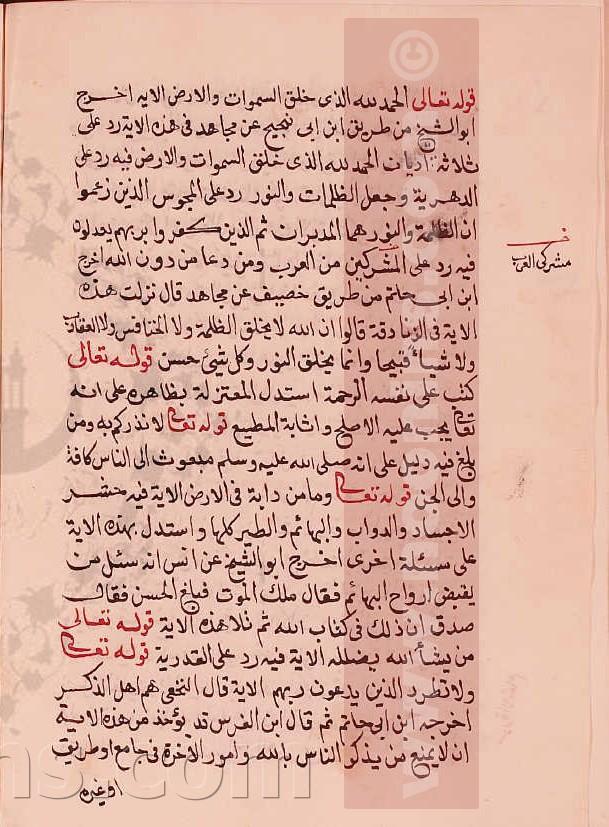 قوله تعالى الحمد لله الذى خلق السموات والارض الاية اخرج
ابو الشيخ من طريق ابن ابى نجيح عن مجاهد فى هذه الاية رد على
ثلاثة اديان الحمد لله الذى خلق السموات والارض فيه رد على
الدهرية وجعل الظلمات والنور رد على المجوس الذين زعموا
ان الظلمة والنور هما المدبران ثم الذين كفروا بربهم يعدلون
فيه رد على المشركين من العرب ومن دعا من دون الله اخرج
مشركى العرب
ابن ابى حاتم من طريق خصيف عن مجاهد قال نزلت هذه
الاية فى الزنادقة قالوا ان الله لا يخلق الظلمة ولا الخنافس ولا العقارب
ولا شيأ قبيحا وانما يخلق النور وكل شئ حسن قوله تعالى
كتب على نفسه الرحمة استدل المعتزلة بظاهره على انه
تعا يجب عليه الاصلح واثابة المطيع قوله تعا لانذركم به ومن
بلغ فيه دليل على انه صلى الله عليه وسلم مبعوث الى الناس كافة
والى الجن قوله تعا وما من دابة فى الارض الاية فيه حشر
الاجساد والدواب والبهائم والطير كلها واستدل بهذه الاية
على مسئلة اخرى اخرج ابو الشيخ عن انس انه سئل من
يقبض ارواح البهائم فقال ملك الموت فبلغ الحسن فقال
صدق ان ذلك فى كتاب الله ثم تلا هذه الاية قوله تعالى
من يشأ الله يضلله الاية فيه رد على القدرية قوله تعا
ولا تطرد الذين يدعون ربهم الاية قال النخعى هم اهل الذكر
اخرجه ابن ابى حاتم ثم قال ابن الفرس قد يؤخذ من هذه الاية
ان لا يمنع من يذكر الناس بالله وامور الآخرة فى جامع او طريق
او غيره